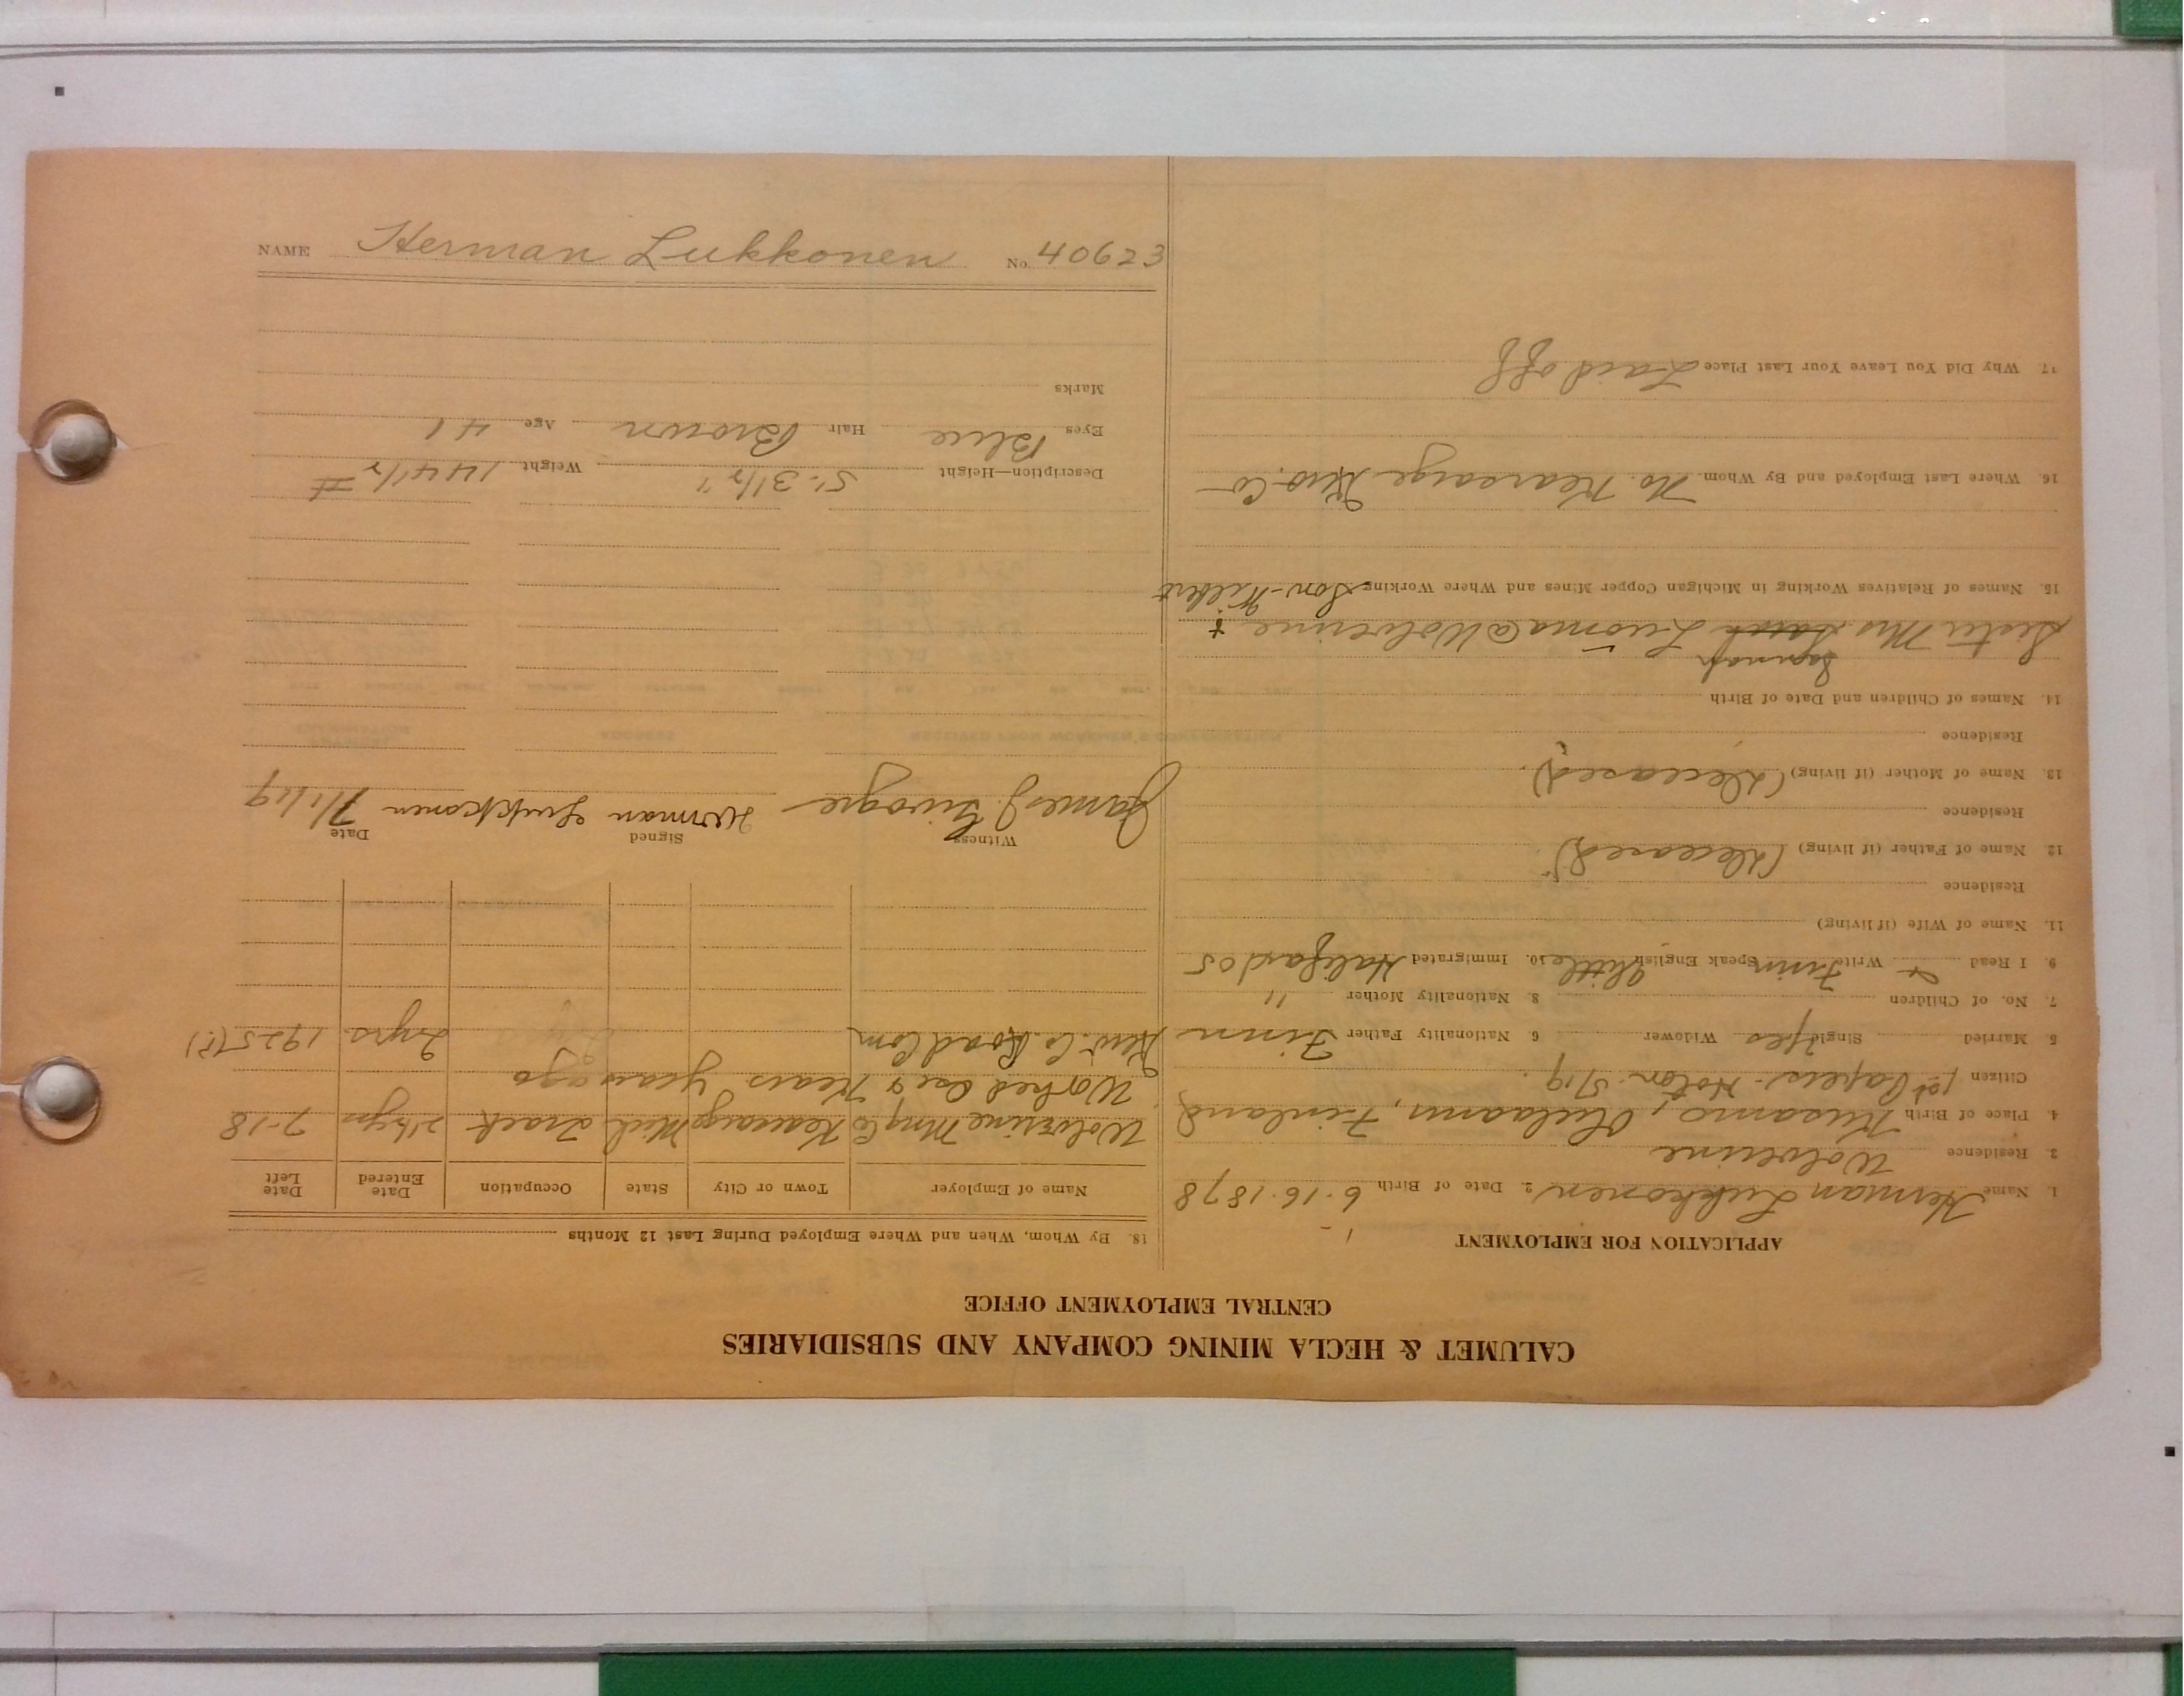 CALUMET & HECLA MINING COMPANY AND SUBSIDIARIES
CENTRAL EMPLOYMENT OFFICE
APPLICATION FOR EMPLOYMENT
1. Name Herman Lukkonen 2. Date of Birth 6.16.1878
3. Residence Wolverine
4. Place of Birth Kusamo, Finland
Citizen 1st Papers. 5/19.
5 Married Single Yes Widower 6 Nationality Father Finn
7. No. of Children 8. Nationality Mother "
9. I Read & Write Finn Speak English Little 10. Immigrated 05
11. Name of Wife (if living)
Residence
12. Name of Father (if living) (Deceased).
Residence
13. Name of Mother (if living) (Deceased).
Residence
14. Names of Children and Date of Birth
Hannah
Sister Mrs Sarah Luoma @ Wolverine +
15. Names of Relatives Working in Michigan Copper Mines and Where Working Son-Wilbert
16. Where Last Employed and By Whom No. Kearsarge Kew. Co
17. Why Did You Leave Your Last Place Laid off
18. By Whom, When and Where Employed During Last 12 Months
Name of Employer Town or City State Occupation Date Entered Date Left
Wolverine Mng Co Kearsarge Mich Track 2½yrs 7-18
Worked Kears years ago
Kew. Co. Road Com 2yrs 1925(?)
Witness Signed Date
James J. Herman Lukkonen 7/1/19
Description—Height 5'-3½" Weight 144½ #
Eyes Blue Hair Brown Age 41
Marks
NAME Herman Lukkonen No. 40623